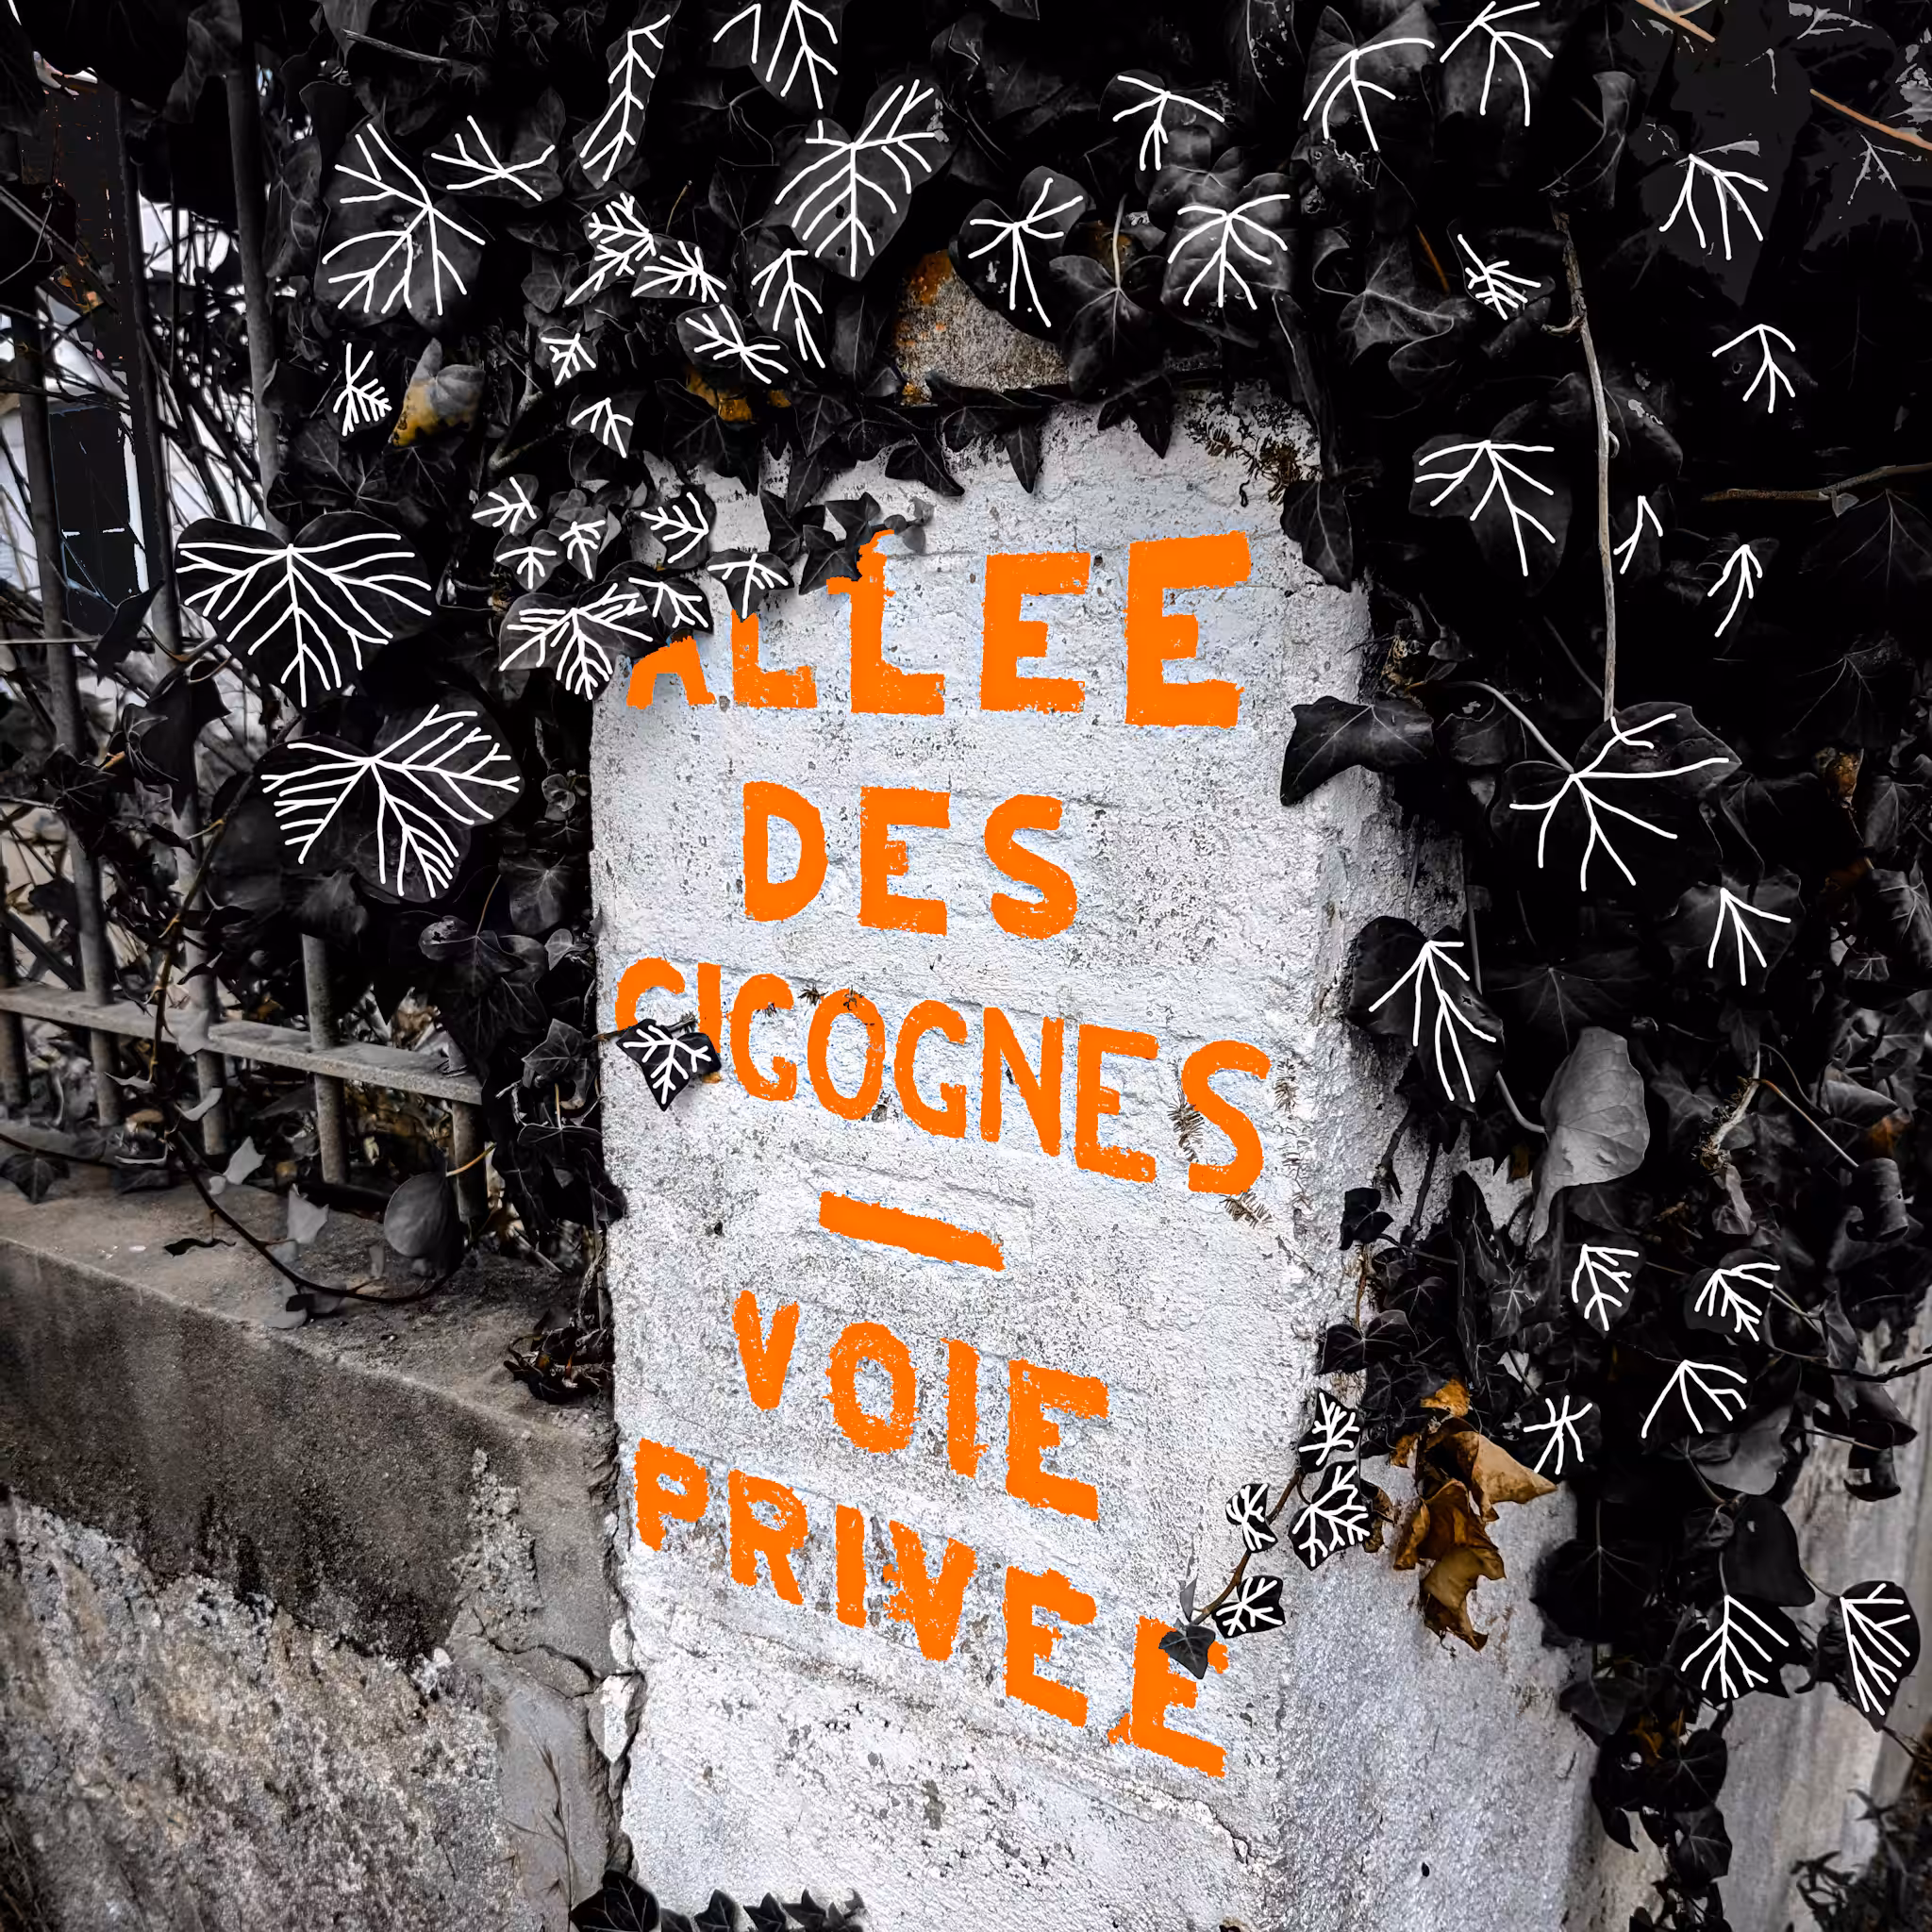 ALLEE
DES
CIGOGNES
—
VOIE
PRIVEE